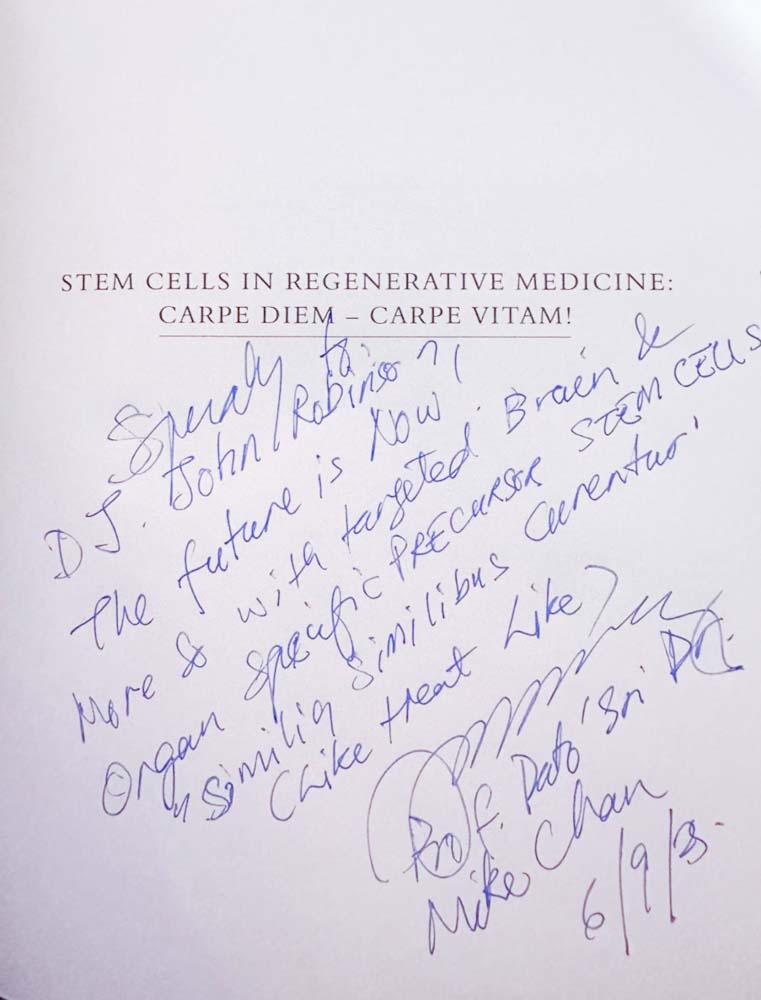 STEM CELLS IN REGENERATIVE MEDICINE:
CARPE DIEM – CARPE VITAM!
Specially to
DJ. John Robinson,
The future is Now!
More so with targeted Brain &
Organ specific PRECURSOR STEM CELLS
"Similia Similibus Curentur'
(Like treat Like)
Prof. Dato' Sri Dr.
Mike Chan
6/9/